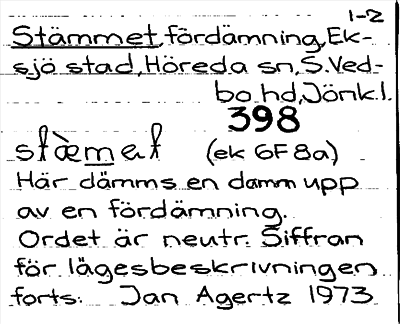 1-2
Stämmet, fördämning, Ek-
sjö stad, Höreda sn, S. Ved-
bo hd, Jönk.l.
398
(ek 6F8a)
Här dämms en damm upp
av en fördämning.
Ordet är neutr. Siffran
för lägesbeskrivningen
forts. Jan Agertz 1973